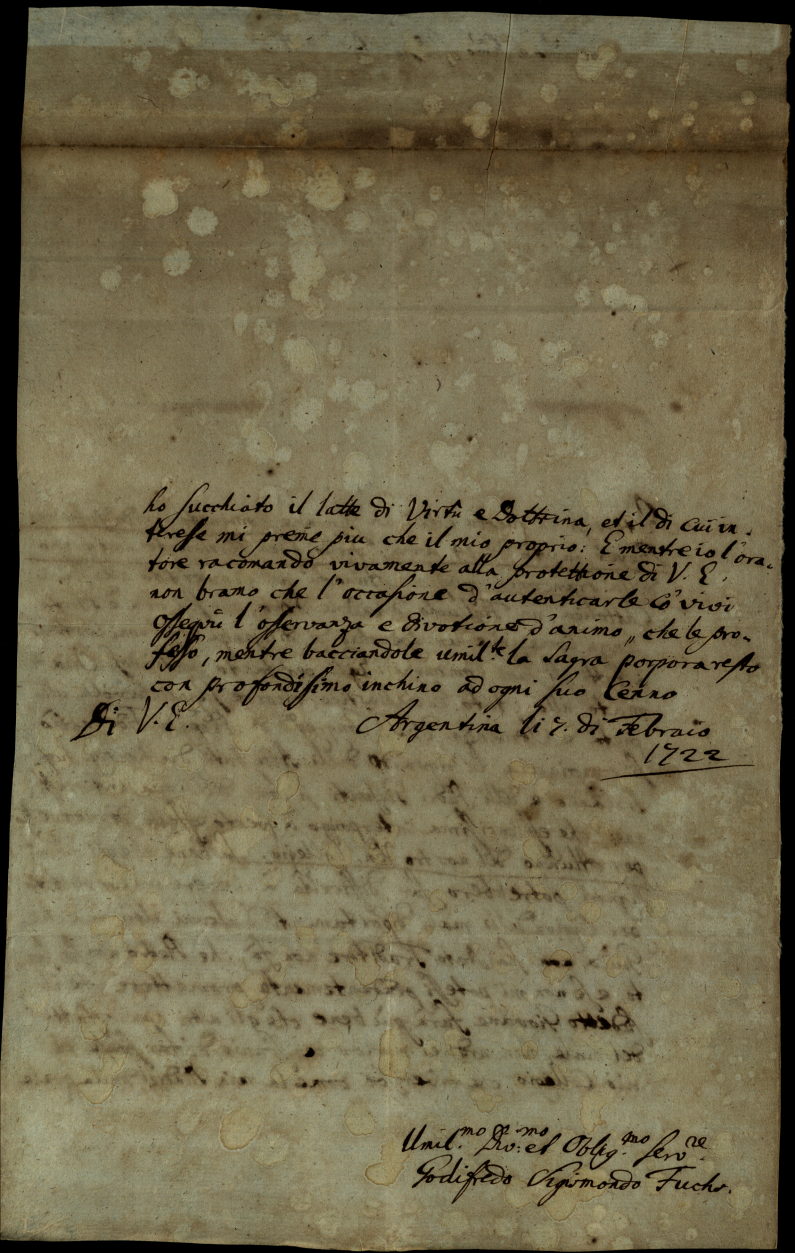 ho succhiato il latte di Virtù e Dottrina, et il di cui in-
teresse mi preme piu che il mio proprio: E mentre io l'ora-
tore racomando vivamente alla protettione di V. E.
non bramo che l'occasione d'autenticarle co' vivi
ossequii l'osservanza e divotione d'animo, che le pro-
fesso, mentre bacciandole umil.te la Sagra porpora resto
con profondissimo inchino ad ogni suo Cenno
Di V. E. Argentina li 7. di Febraio
1722
Umil.mo Div.mo et Oblig.mo serv.re
Godifredo Sigismondo Fuchs.